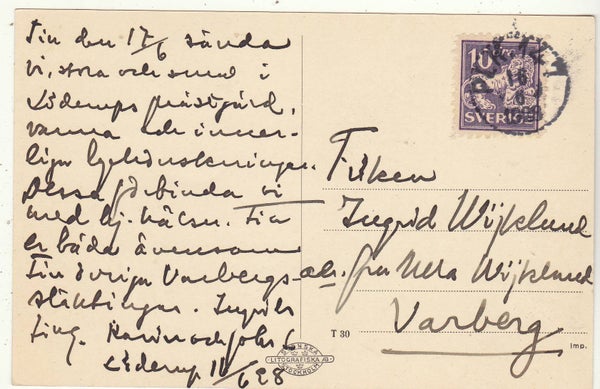 Till den 17/6 sända
vi, stora och små i
Löderups prästgård,
varma och inner-
liga lyckönskningar.
Dessa förbinda vi
med hj. hälsn. till
er båda ävensom
Till övriga Varbergs-
släktingar. Ingrids
Karin och John
Löderup 16/6 28
10
SVERIGE
16
6
Fröken
Ingrid Wijklund
adr. fru Wijklund
Varberg
T 30
Imp.
SVENSKA
LITOGRAFISKA AB
STOCKHOLM